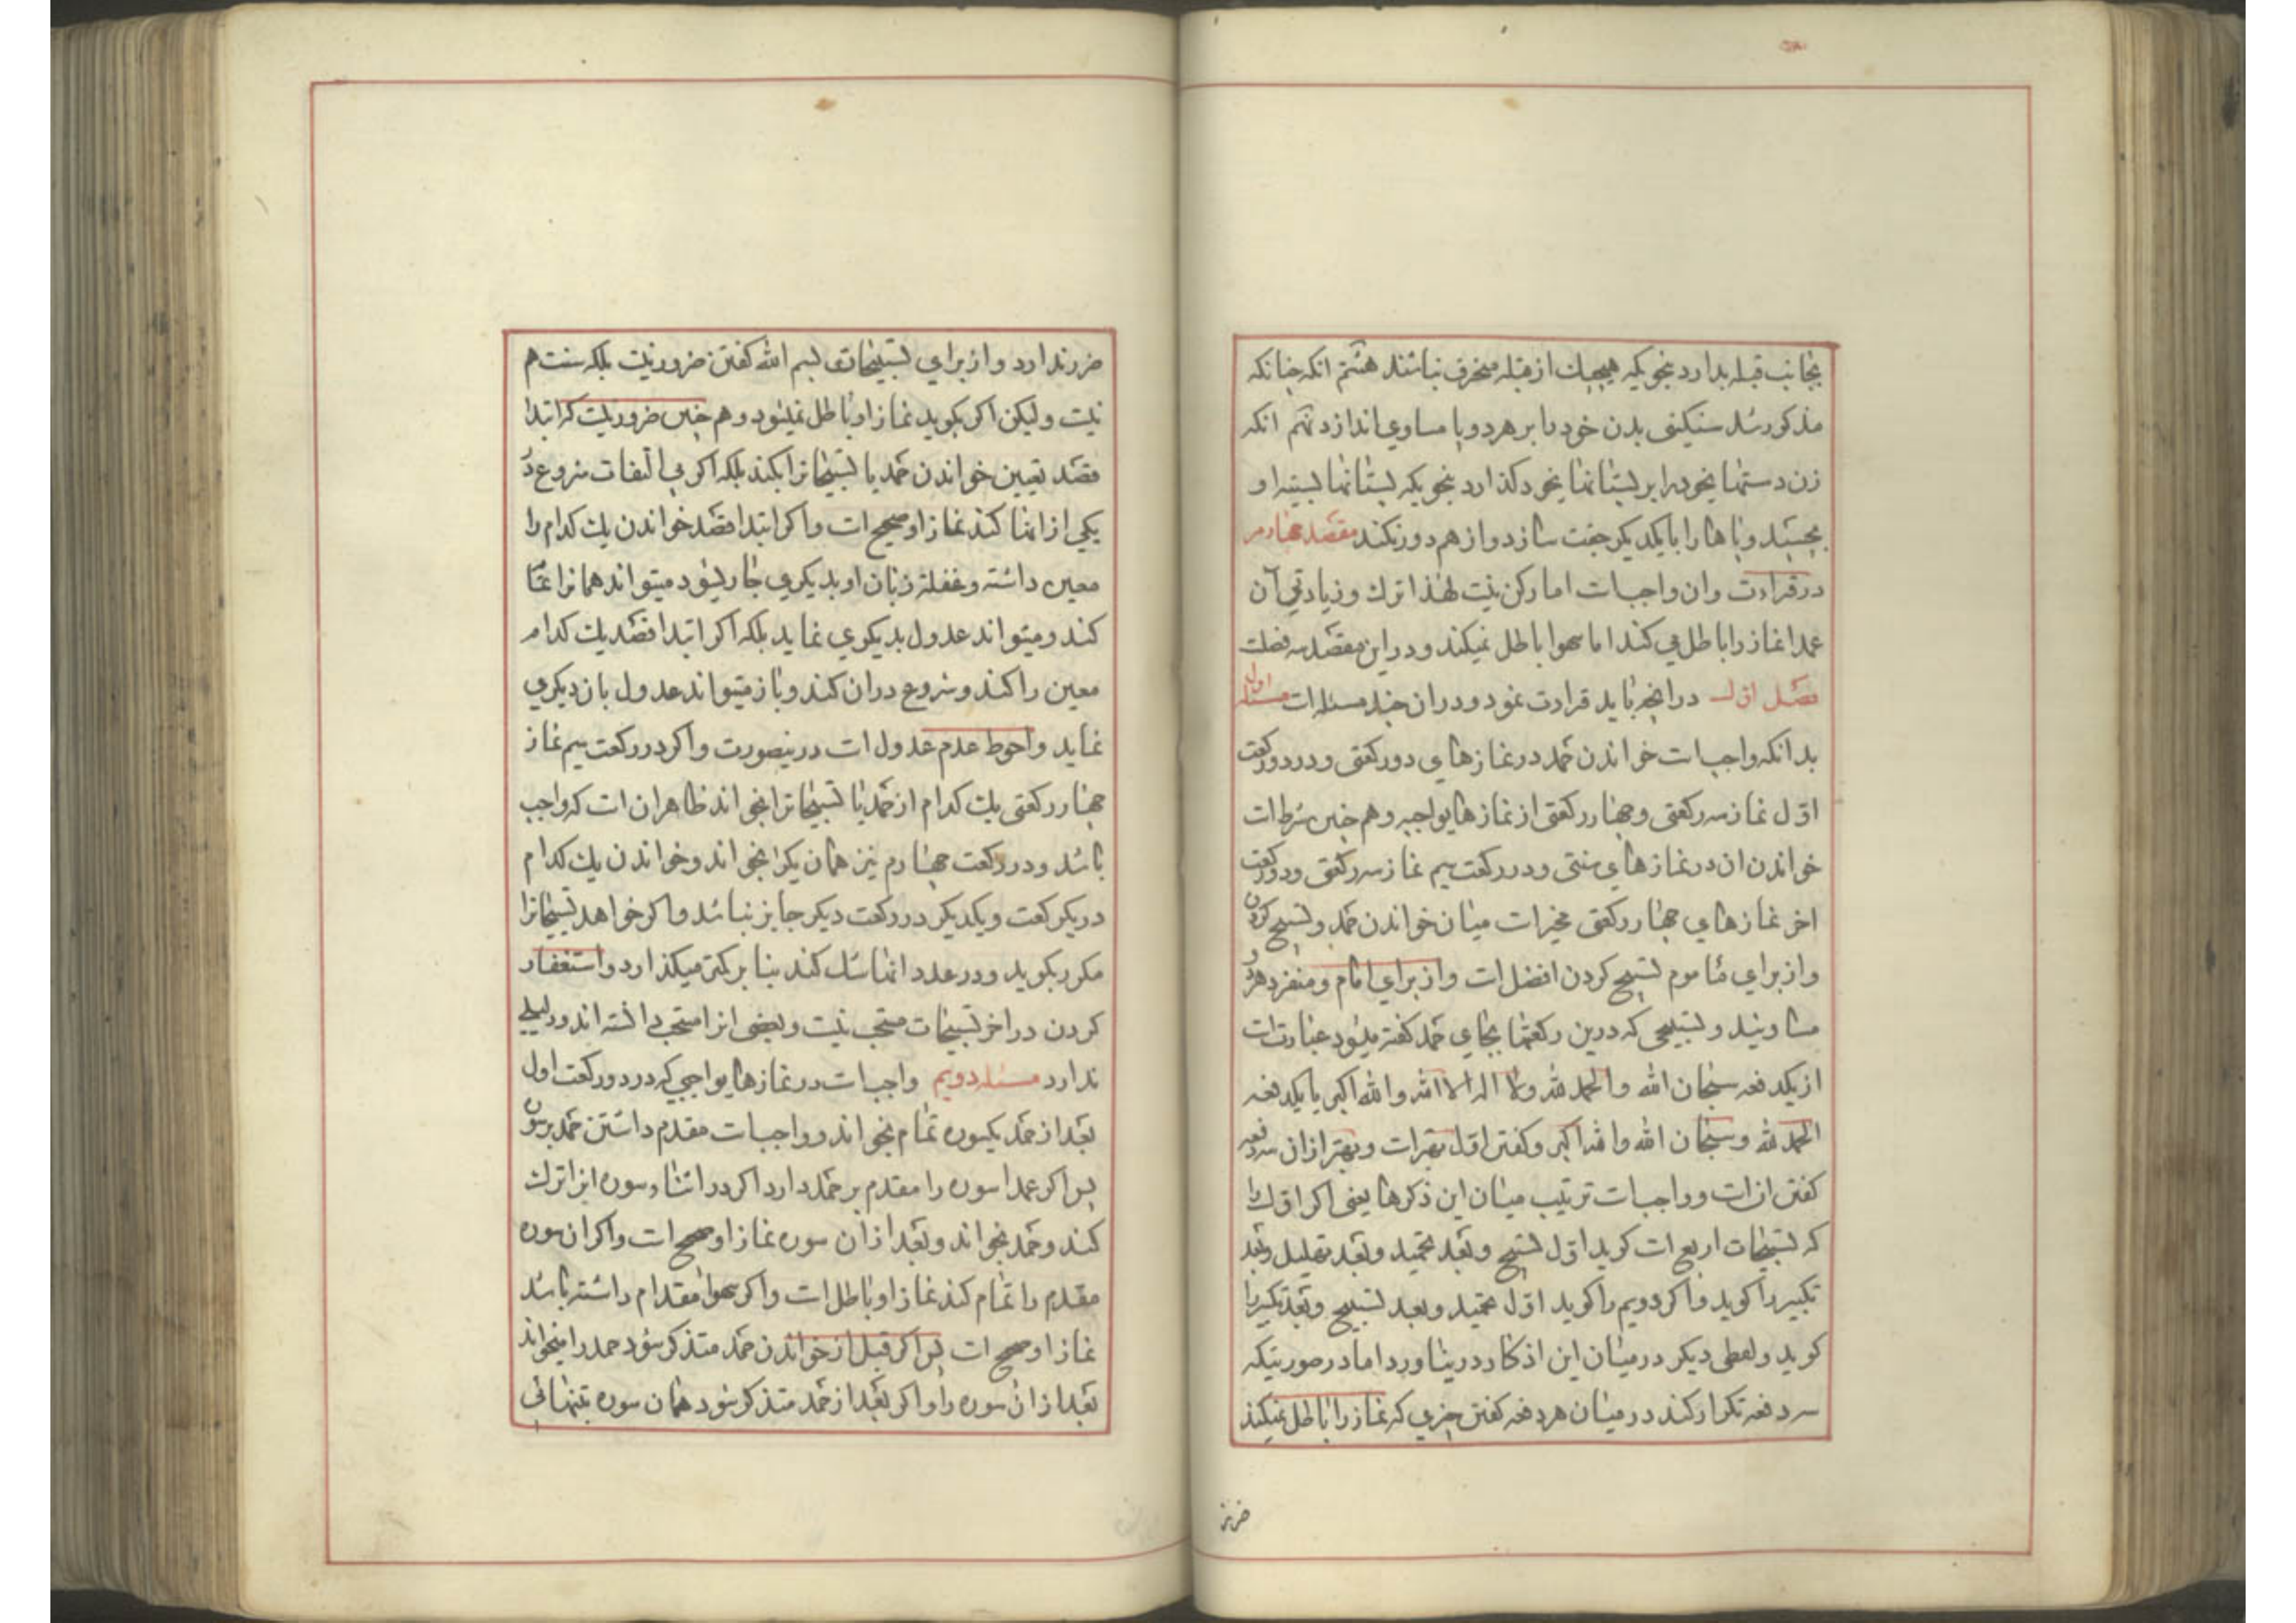 بجانب قبله بدارد بنحویکه هیچیك از قبله منحرف نباشند هشتم انکه چنانکه
مذکور شد سنکینی بدن خود را بر هر دو پا مساوی اندازد نهم انکه
زن دستهای خود را بر پستانهای خود کذارد بنحویکه پستانها بسینه او
بچسبند و پاها را بایکدیکر جفت سازد و از هم دور نکند مقصد چهارم
در قراءت و ان واجب است اما رکن نیست لهذا ترك و زیادتی آن
عمدا نماز را باطل می کند اما سهوا باطل نمیکند و در این مقصد سه فصلست
فصل اول در انچه باید قراءت نمود و در ان چند مسئله است مسئله اول
بدانکه واجب است خواندن حمد در نمازهای دو رکعتی و در دو رکعت
اول نماز سه رکعتی و چهار رکعتی از نمازهای واجبه و هم چنین شرط است
خواندن ان در نمازهای سنتی و در رکعت سیم نماز سه رکعتی و دو رکعت
اخر نمازهای چهار رکعتی مخیر است میان خواندن حمد و تسبیح کردن
و از برای ماموم تسبیح کردن افضل است و از برای امام و منفرد هر دو
مساویند و تسبیحی که درین رکعتها بجای حمد کفته میشود عبارتست
از یکدفعه سبحان الله والحمد لله ولا اله الا الله والله اکبر یا یکدفعه
الحمد لله وسبحان الله والله اکبر و کفتن اول بهتر است و بهتر از ان سه دفعه
کفتن انست و واجب است ترتیب میان این ذکرها یعنی اکر اول را
که تسبیحات اربع است کوید اول تسبیح و بعد تحمید و بعد تهلیل و بعد
تکبیر را کوید و اکر دویم را کوید اول تحمید و بعد تسبیح و بعد تکبیر را
کوید و لفظی دیکر در میان این اذکار در نیاورد اما در صورتیکه
سه دفعه تکرار کند در میان هر دفعه کفتن چیزی که نماز را باطل نمیکند
ضرر ندارد و از برای تسبیحات بسم الله کفتن ضرور نیست بلکه سنت هم
نیست ولیکن اکر بکوید نماز او باطل نمیشود و هم چنین ضرور نیست که ابتدا
قصد تعیین خواندن حمد یا تسبیحات را بکند بلکه اکر بی التفات شروع در
یکی از انها کند نماز او صحیح است و اکر ابتدا قصد خواندن یك کدام را
معین داشته و غفلة زبان او بدیکری جاری شود میتواند همانرا تمام
کند و میتواند عدول بدیکری نماید بلکه اکر ابتدا قصد یك کدام
معین را کند و شروع در ان کند و باز میتواند عدول بان دیکری
نماید و احوط عدم عدول است در ینصورت و اکر در رکعت سیم نماز
چهار رکعتی یك کدام از حمد یا تسبیحات را بخواند ظاهر ان است که واجب
باشد و در رکعت چهارم نیز همان یکرا بخواند و خواندن یك کدام
در یکرکعت و یکدیکر در رکعت دیکر جایز نباشد و اکر خواهد تسبیحات را
مکرر بکوید و در عدد انها شك کند بنا بر کمتر میکذارد و استغفار
کردن در اخر تسبیحات مستحب نیست و بعضی انرا مستحب دانسته اند و دلیلی
ندارد مسئله دویم واجب است در نمازهای واجبی که در دو رکعت اول
بعد از حمد یکسوره تمام بخواند و واجب است مقدم داشتن حمد بر سوره
پس اکر عمدا سوره را مقدم بر حمد دارد اکر در اثناء سوره انرا ترك
کند و حمد بخواند و بعد از ان سوره نماز او صحیح است و اکر ان سوره
مقدم را تمام کند نماز او باطل است و اکر سهوا مقدام داشته باشد
نماز او صحیح است پس اکر قبل از خواندن حمد متذکر شود حمد را میخواند
بعد از ان سوره را و اکر بعد از حمد متذکر شود همان سوره بتنهائی